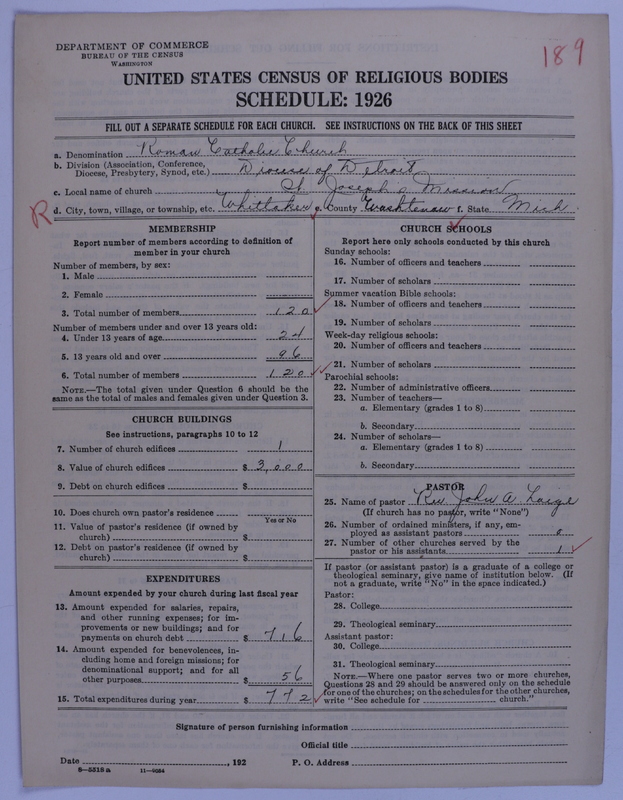 DEPARTMENT OF COMMERCE
BUREAU OF THE CENSUS
WASHINGTON
189
UNITED STATES CENSUS OF RELIGIOUS BODIES
SCHEDULE: 1926
FILL OUT A SEPARATE SCHEDULE FOR EACH CHURCH. SEE INSTRUCTIONS ON THE BACK OF THIS SHEET
a. Denomination Roman Catholic Church
b. Division (Association, Conference,
Diocese, Presbytery, Synod, etc.) Diocese of Detroit
c. Local name of church St. Joseph's Mission
R d. City, town, village, or township, etc. Whittaker e. County Washtenaw f. State Mich.
MEMBERSHIP
Report number of members according to definition of
member in your church
Number of members, by sex:
1. Male
2. Female
3. Total number of members 120
Number of members under and over 13 years old:
4. Under 13 years of age 24
5. 13 years old and over 96
6. Total number of members 120
NOTE.—The total given under Question 6 should be the
same as the total of males and females given under Question 3.
CHURCH BUILDINGS
See instructions, paragraphs 10 to 12
7. Number of church edifices 1
8. Value of church edifices $ 3,000
9. Debt on church edifices $
10. Does church own pastor's residence
Yes or No
11. Value of pastor's residence (if owned by
church) $
12. Debt on pastor's residence (if owned by
church) $
EXPENDITURES
Amount expended by your church during last fiscal year
13. Amount expended for salaries, repairs,
and other running expenses; for im-
provements or new buildings; and for
payments on church debt $ 716
14. Amount expended for benevolences, in-
cluding home and foreign missions; for
denominational support; and for all
other purposes $ 56
15. Total expenditures during year $ 772
CHURCH SCHOOLS
Report here only schools conducted by this church
Sunday schools:
16. Number of officers and teachers
17. Number of scholars
Summer vacation Bible schools:
18. Number of officers and teachers
19. Number of scholars
Week-day religious schools:
20. Number of officers and teachers
21. Number of scholars
Parochial schools:
22. Number of administrative officers
23. Number of teachers—
a. Elementary (grades 1 to 8)
b. Secondary
24. Number of scholars—
a. Elementary (grades 1 to 8)
b. Secondary
PASTOR
25. Name of pastor Rev. John A.
(If church has no pastor, write "None")
26. Number of ordained ministers, if any, em-
ployed as assistant pastors 0
27. Number of other churches served by the
pastor or his assistants 1
If pastor (or assistant pastor) is a graduate of a college or
theological seminary, give name of institution below. (If
not a graduate, write "No" in the space indicated.)
Pastor:
28. College
29. Theological seminary
Assistant pastor:
30. College
31. Theological seminary
NOTE.—Where one pastor serves two or more churches,
Questions 28 and 29 should be answered only on the schedule
for one of the churches; on the schedules for the other churches,
write "See schedule for church."
Signature of person furnishing information
Official title
Date , 192 P. O. Address
8—5518a 11—9054